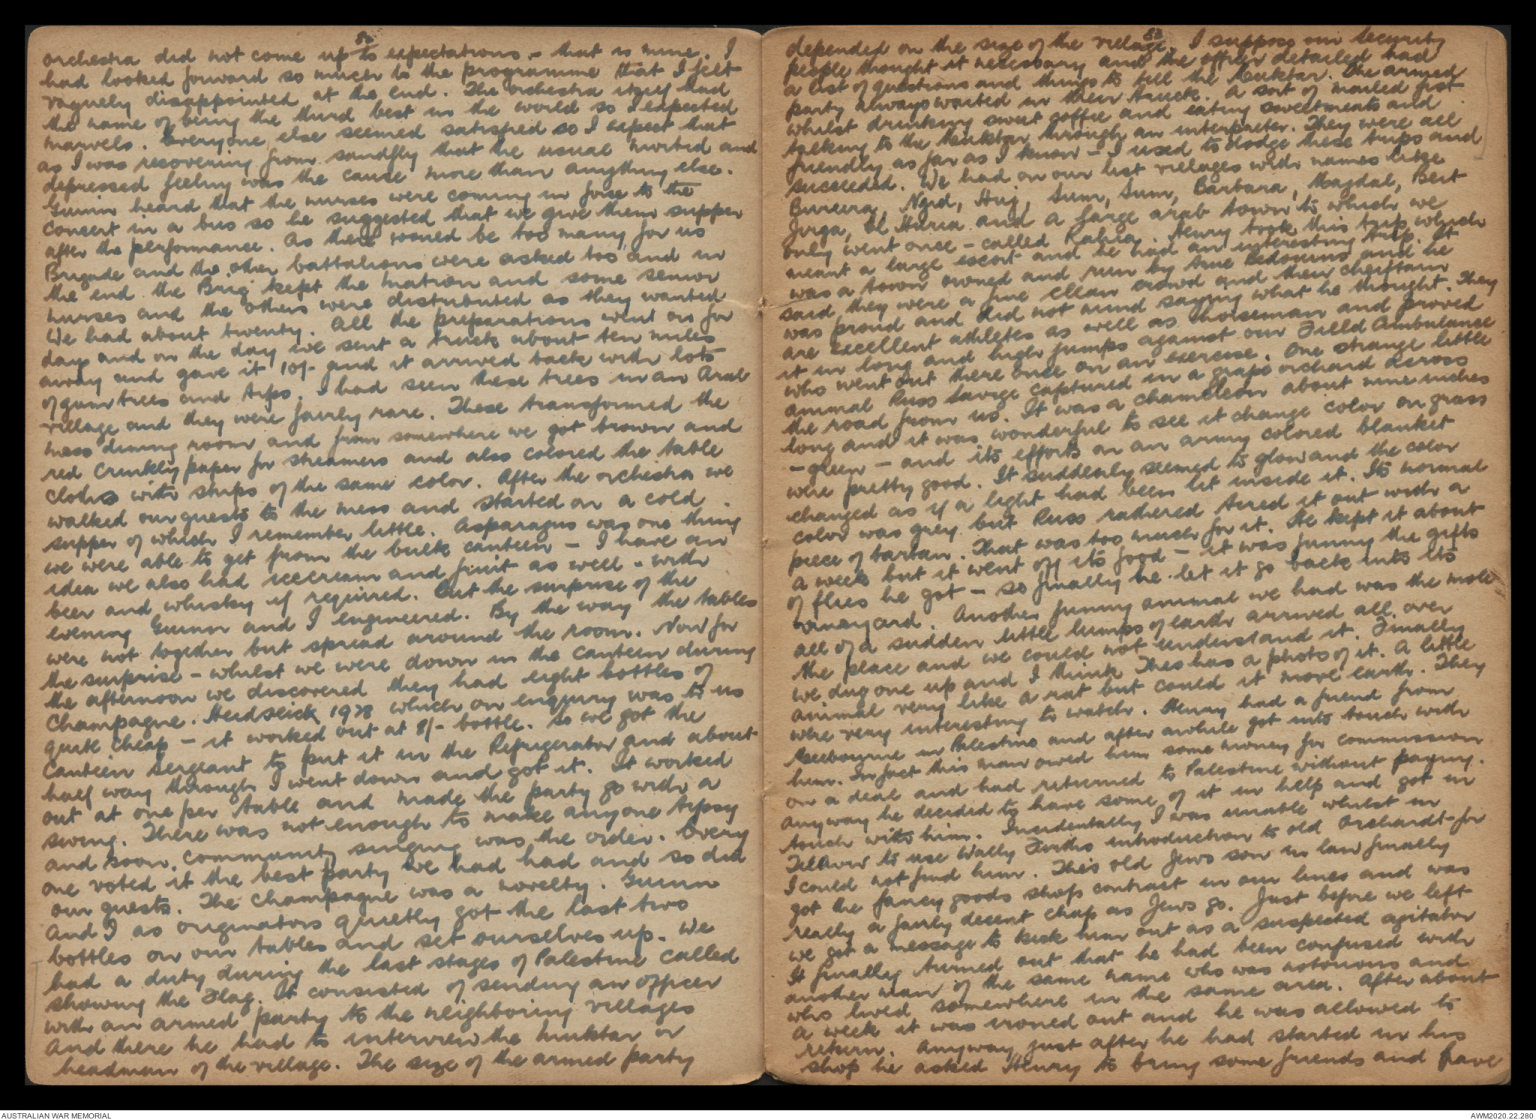 52
orchestra did not come up to expectations - that is mine. I
had looked forward so much to the programme that I felt
vaguely disappointed at the end. The orchestra itself had
the name of being the third best in the world so I expected
marvels. Everyone else seemed satisfied so I expect that
as I was recovering from sandfly that the usual and
depressed feeling was the cause more than anything else.
Guinn heard that the nurses were coming in force to the
concert in a bus so he suggested that we give them supper
after the performance. As there would be too many for us
Brigade and the other battalions were asked too and in
the end the Brig kept the matron and some senior
nurses and the others were distributed as they wanted
We had about twenty. All the preparations went on for
days and on the day we sent a truck about ten miles
away and gave it 10/- and it arrived back with lots
of gumtrees and tips. I had seen these trees in an Arab
village and they were fairly rare. These transformed the
mess dining room and from somewhere we got brown and
red crinkly paper for streamers and also colored the table
cloths with strips of the same color. After the orchestra we
walked our guests to the mess and started on a cold
supper of which I remember little. Asparagus was one thing
we were able to get from the bulk canteen - I have an
idea we also had icecream and fruit as well - with
beer and whisky if required. But the surprise of the
evening Guinn and I engineered. By the way the tables
were not together but spread around the room. Now for
the surprise - whilst we were down in the canteen during
the afternoon we discovered they had eight bottles of
Champagne. Heidseick 1928 which on enquiry was to us
quite cheap - it worked out at 8/- bottle. So we got the
Canteen Sergeant to put it in the Refrigerator and about
half way through I went down and got it. It worked
out at one per table and made the party go with a
swing. There was not enough to make anyone tipsy
and soon community singing was the order. Every
one voted it the best party we had had and so did
our guests. The champagne was a novelty. Guinn
and I as originators quietly got the last two
bottles on our tables and set ourselves up. We
had a duty during the last stages of Palestine called
showing the Flag. It consisted of sending an officer
with an armed party to the neighboring villages
and there he had to interview the muktar or
headman of the village. The size of the armed party
53
depended on the size of the village. I suppose our security
people thought it necessary and the officer detailed had
a list of questions and things to tell the Muktar. The armed
party always waited in their truck. A sort of mailed fist
whilst drinking sweet coffee and eating sweetmeats and
talking to the Muktar through an interpreter. They were all
friendly as far as I know - I used to dodge these trips and
succeeded. We had on our list villages with names like
Bureira, Njid, Huj, Sum, Sum, Barbara, Magdal, Beit
Jirga, El Hiria and a large arab town to which we
only went once - called Kahla. Henry took this trip which
meant a large escort and he had an interesting time. It
was a town owned and run by true Bedouins and he
said they were a fine clean crowd and their chieftain
was proud and did not mind saying what he thought. They
are excellent athletes as well as horseman and proved
it in long and high jumps against our Field Ambulance
who went out there once on an exercise. One strange little
animal Russ Savige captured in a grape orchard across
the road from us. It was a chameleon about nine inches
long and it was wonderful to see it change color on grass
- green - and its efforts on an army colored blanket
were pretty good. It suddenly seemed to glow and the color
changed as if a light had been lit inside it. Its normal
color was grey but Russ rathered tired it out with a
piece of tartan. That was too much for it. He kept it about
a week but it went off its food - it was funny the gifts
of flies he got - so finally he let it go back into its
vinayard. Another funny animal we had was the mole
all of a sudden little lumps of earth arrived all over
the place and we could not understand it. Finally
we dug one up and I think Thes has a photo of it. A little
animal very like a rat but could it move earth. They
were very interesting to watch. Henry had a friend from
Melbourne in Palestine and after awhile got into touch with
him. In fact this man owed him some money for commission
on a deal and had returned to Palestine without paying.
Anyway he decided to have some of it in help and got in
touch with him. Incidentally I was unable whilst in
Telaviv to use Wally introduction to old Orchardt - for
I could not find him. This old Jews son in law finally
got the fancy goods shop contract in our lines and was
really a fairly decent chap as Jews go. Just before we left
we got a message to kick him out as a suspected agitator
It finally turned out that he had been confused with
another man of the same name who was notorious and
who lived somewhere in the same area. After about
a week it was ironed out and he was allowed to
return. Anyway just after he had started in his
shop he asked Henry to bring some friends and have
AUSTRALIAN WAR MEMORIAL
AWM2020.22.280